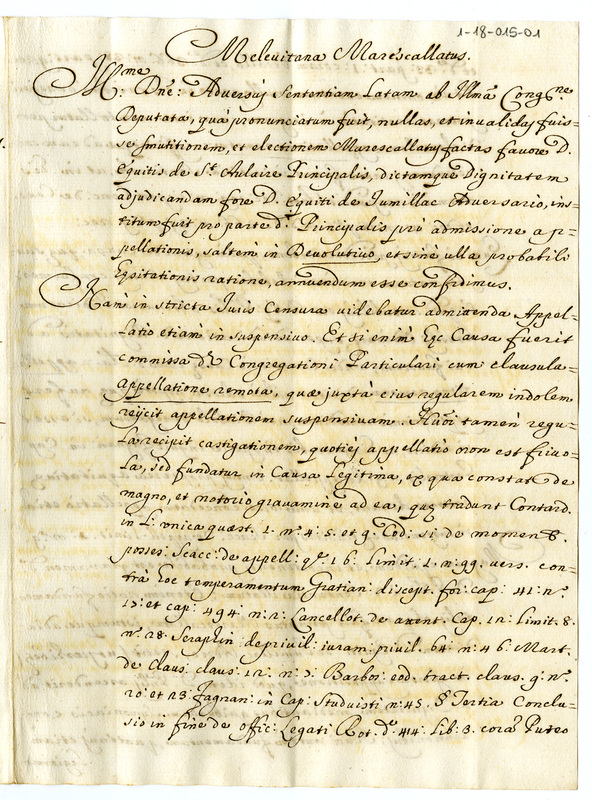 1-18-015-01
Melevitana Marescallatus.
Ill.me Dne: Adversus Sententiam Latam ab Illma Congne.
Deputata, qua pronunciatum fuit, nullas, et invalidas fuis=
se, et electionem Marescallatus factas favore D.
Equitis de St. Aulaire Principalis, dictamque Dignitatem
adjudicandam fore D. Equiti de Jumillac Adversario, ins=
titum fuit pro parte d. Principalis pro admissione ap=
pellationis, saltem in Devolutivo, et sine ulla probabili
Hesitationis ratione, annuendum esse confidimus.
Nam in stricta Iuris Censura videbatur admittenda Appel=
latio etiam in suspensivo. Et si enim hec Causa fuerit
commissa dae Congregationi Particulari cum clausula=
appellatione remota, quae juxta eius regularem indolem
reijcit appellationem suspensivam. Huic tamen regu=
la recipit castigationem, quoties appellatio non est frivo=
la, sed fundatur in Causa legitima, ex qua constat de
magno, et notorio gravamine ad ea, quae tradunt Contard.
in L: unica quaest. 1. n. 4. 5. et 9. Cod: si de moment.
posses: Scacc: de appell: q. 16. Limit. 1. n. 99. vers. con=
tra hoc temperamentum Gratian: discept. for: cap: 41: n.
et cap: 494: n: 2: Lancellot. de attent. Cap. 12: Limit. 8.
n. 28. Seraphin: de privil: iuram: privil. 64: n: 46. Mart.
de Claus: claus: 12. n: Barbos: eod. tract. claus. 9: n.
20: et 23 Fagnan: in Cap: Studuisti n: 45. § Tertia Conclu=
sio in fine de offic: Legati Rot. d. 414. Lib: 3. cora Puteo